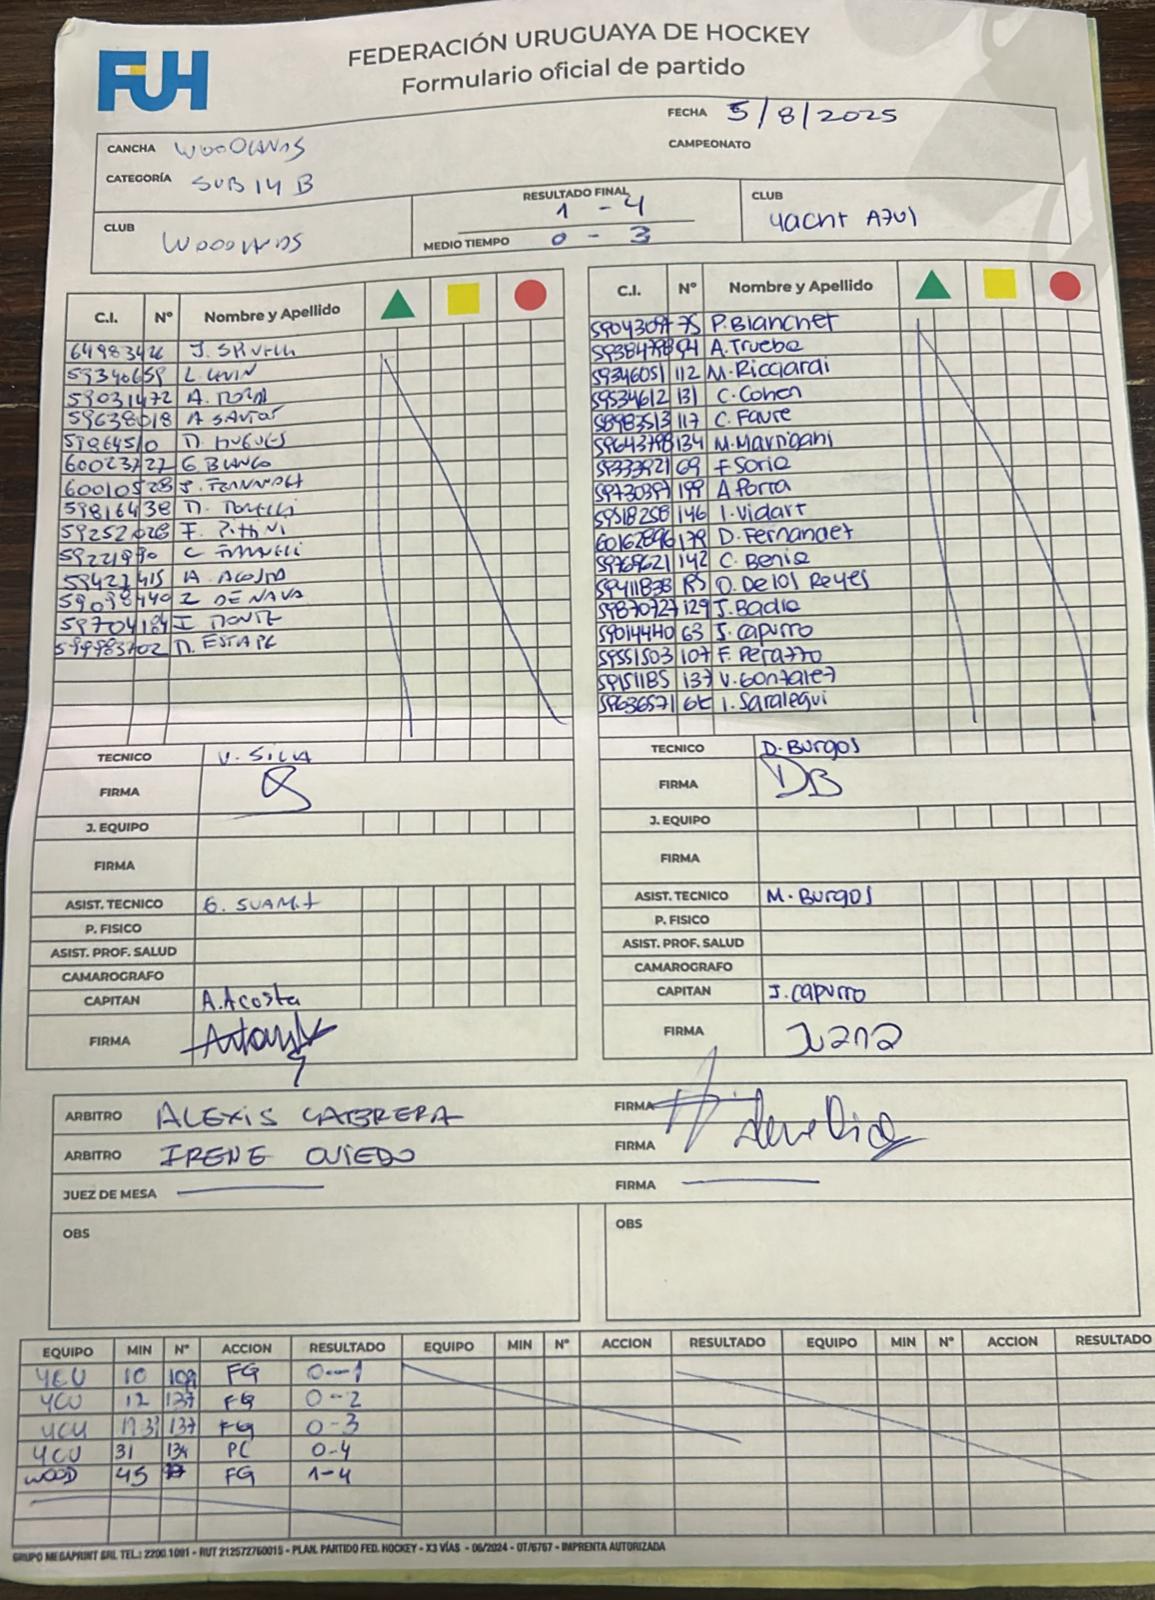 FUH
FEDERACIÓN URUGUAYA DE HOCKEY
Formulario oficial de partido
FECHA 5/8/2025
CANCHA WOODLANDS
CAMPEONATO
CATEGORÍA SUB 14 B
CLUB WOODLANDS
RESULTADO FINAL 1 - 4
MEDIO TIEMPO 0 - 3
CLUB Yacht Azul
C.I. Nº Nombre y Apellido
64983426
59340659
59031472 A.
59638018
G. BLANCO
J.
59816438
59252028 F. Pittini
C
A. ACOSTA
Z DE NAVA
59704184 I
TECNICO V. SILVA
FIRMA
J. EQUIPO
FIRMA
ASIST. TECNICO G.
P. FISICO
ASIST. PROF. SALUD
CAMAROGRAFO
CAPITAN A. Acosta
FIRMA
C.I. Nº Nombre y Apellido
75 P. Blanchet
A. Trueba
59346051 112 M. Ricciardi
59534612 131 C. Cohen
58983513 117 C. Favre
134 M.
69 F. Soria
199 A. Porra
59518258 146 I. Vidart
179 D. Fernandez
59769621 142 C. Benia
59411838 O. De los Reyes
59870727 129 J. Badia
59014440 63 J. Capurro
59551503 107 F. Perazzo
59151185 137 V. Gonzalez
59636571 I. Saralegui
TECNICO D. Burgos
FIRMA DB
J. EQUIPO
FIRMA
ASIST. TECNICO M. Burgos
P. FISICO
ASIST. PROF. SALUD
CAMAROGRAFO
CAPITAN J. Capurro
FIRMA Juana
ARBITRO ALEXIS CABRERA FIRMA
ARBITRO IRENE OVIEDO FIRMA
JUEZ DE MESA FIRMA
OBS
OBS
EQUIPO MIN Nº ACCION RESULTADO EQUIPO MIN Nº ACCION RESULTADO EQUIPO MIN Nº ACCION RESULTADO
YCU 10 FG 0-1
YCU 12 137 FG 0-2
YCU 137 FG 0-3
YCU 31 134 PC 0-4
WOOD 45 FG 1-4
GRUPO MEGAPRINT SRL TEL.: 2200.1091 - RUT 212572760015 - PLAN. PARTIDO FED. HOCKEY - X3 VÍAS - 06/2024 - OT/6767 - IMPRENTA AUTORIZADA